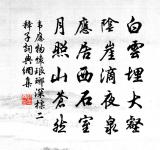 白雲埋大壑
陰崖滴夜泉
應居西石室
月照山蒼然
韋應物懷琅琊深標二
釋子詞典網集